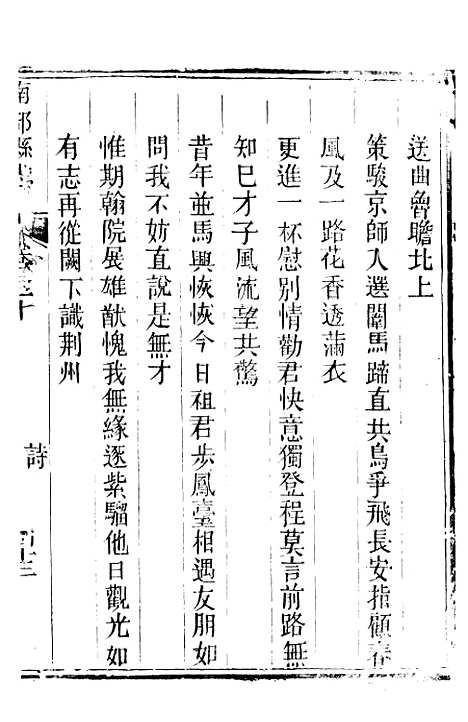 送曲魯瞻北上
策駿京師入選闈馬蹄直共鳥爭飛長安指顧春
風及一路花香透滿衣
更進一杯慰別情勸君快意獨登程莫言前路無
知已才子風流望共驚
昔年並馬興恢恢今日祖君步鳳臺相遇友朋如
問我不妨直說是無才
惟期翰院展雄猷愧我無緣逐紫騮他日觀光如
有志再從闕下識荆州
南部縣
詩